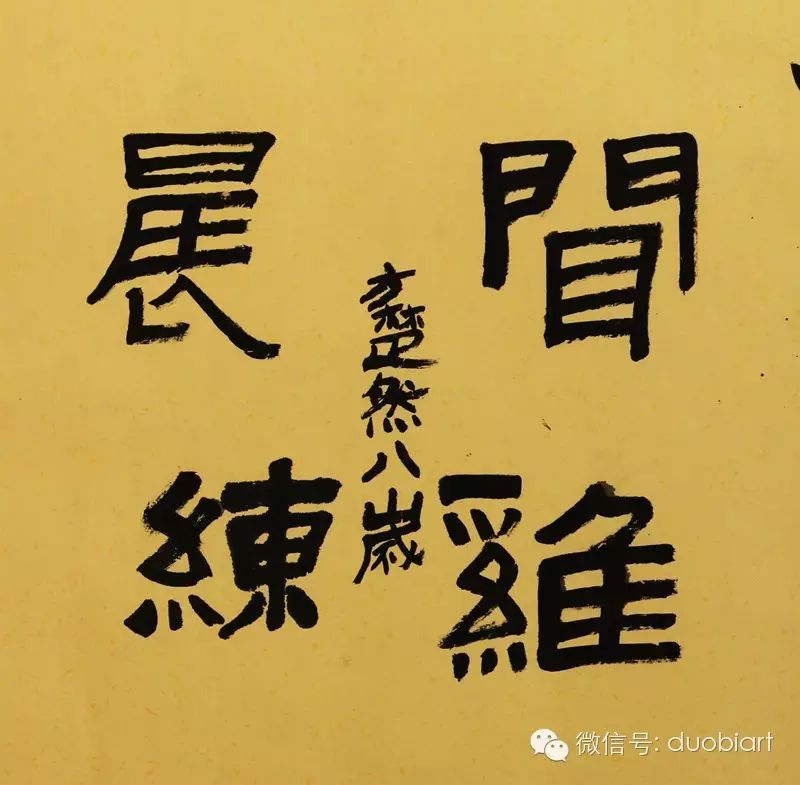 聞雞
晨練
方楚然八歲
微信号: duobiart